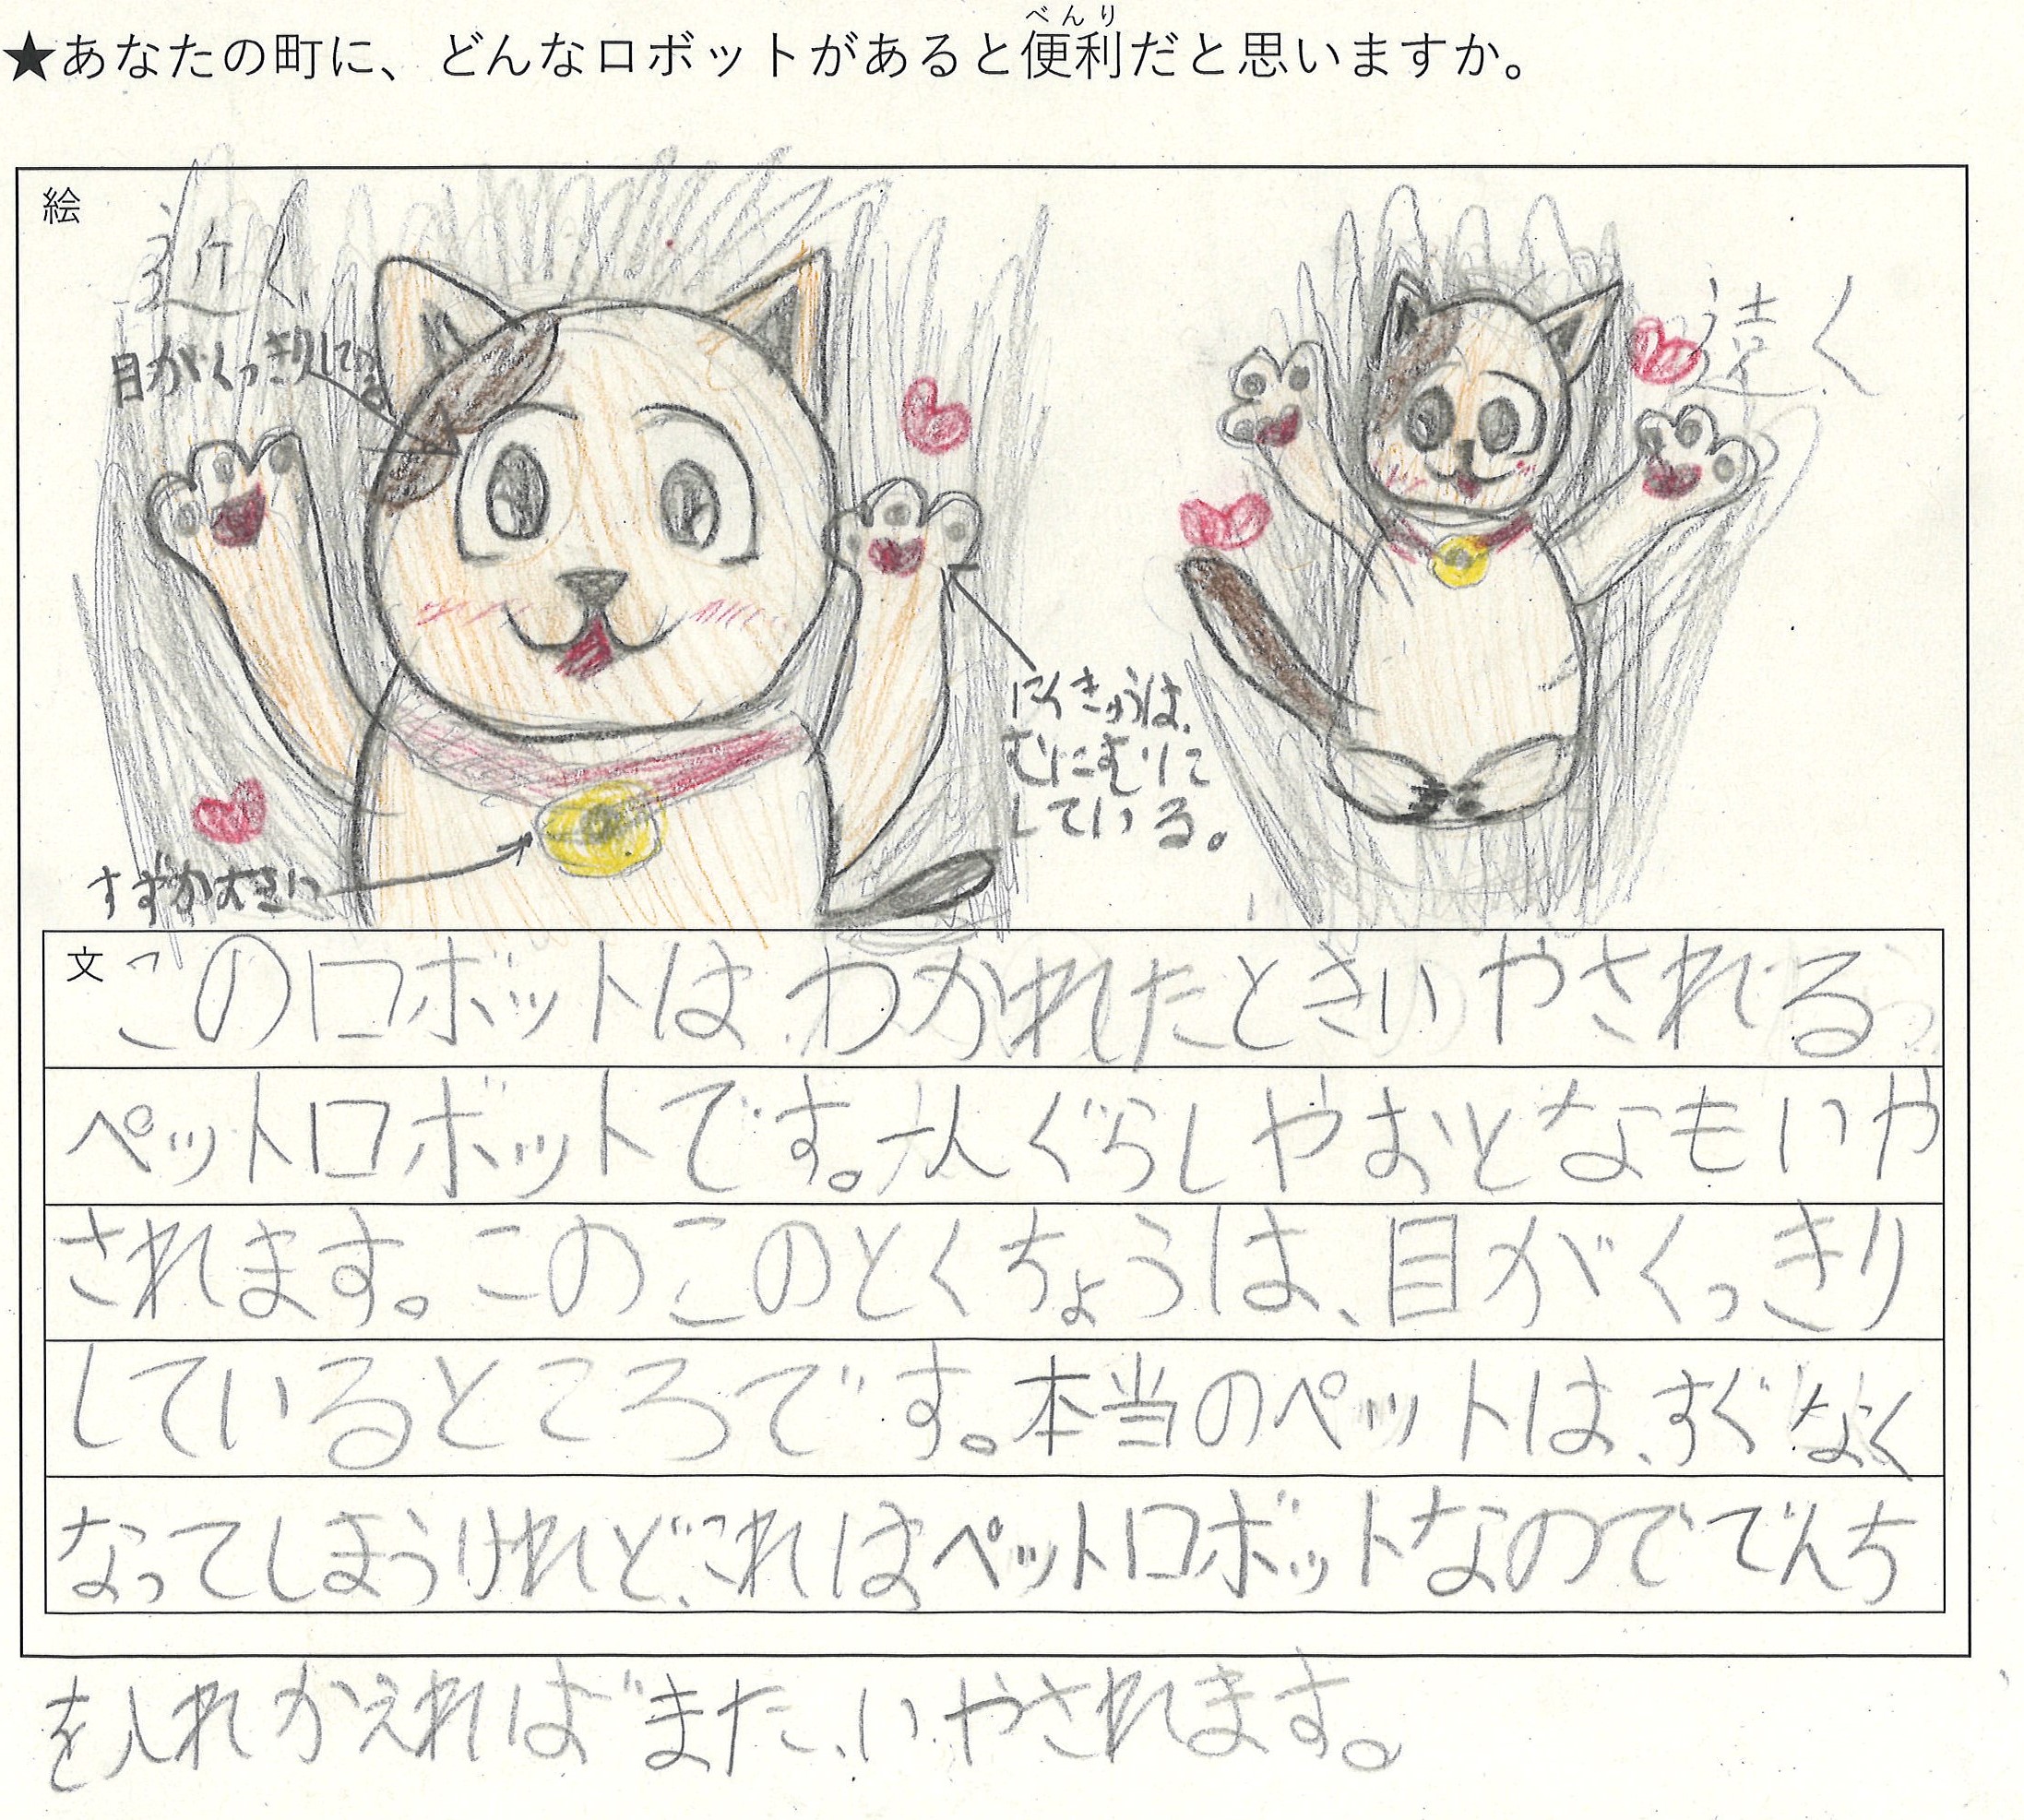 べんり
★あなたの町に、どんなロボットがあると便利だと思いますか。
絵
近く
目がくっきりしてる
遠く
にくきゅうは、
むにむに
している。
すずが大きい
文
このロボットは、わかれたときいやされる
ペットロボットです。一人ぐらしやおとなもいや
されます。このこのとくちょうは、目がくっきり
しているところです。本当のペットは、すぐなく
なってしまうけれど、これはペットロボットなのででんち
を入れかえればまた、いやされます。